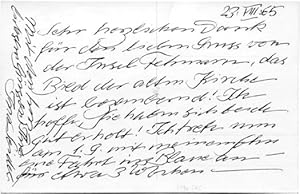 23. VIII. 65
Sehr herzlichen Dank
für den lieben Gruss von
der Insel Fehmarn, das
Bild der alten Kirche
ist bezaubernd! Ich
hoffe, Sie haben sich beide
gut erholt! Ich trete nun
am 1.9. mit meinem
eine Fahrt ins Blaue an –
für etwa 3 Wochen.
Mit